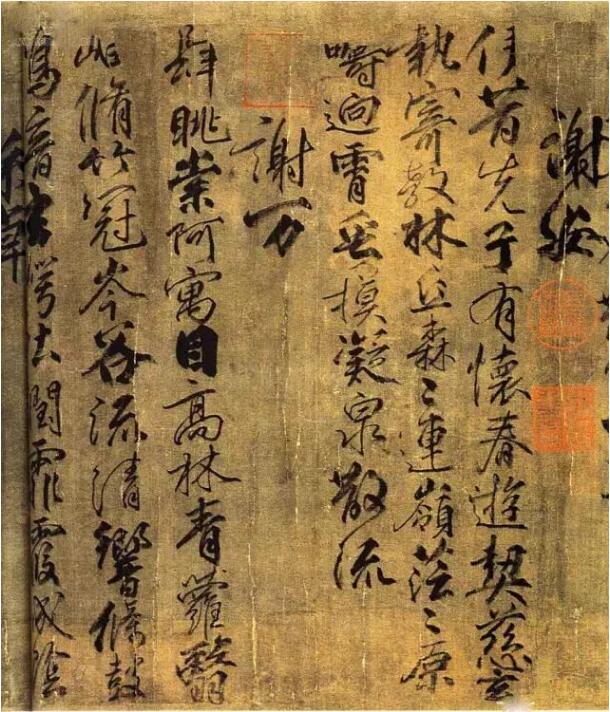 謝安
伊昔先子有懷春遊契慈玄
執寄敖林丘森〻連嶺茫〻原
疇迥霄垂凝泉散流
謝万
肆眺崇阿寓目高林青蘿翳
岫脩竹冠岑谷流清響條鼓
鳴音玄崿吐潤霏霧成陰